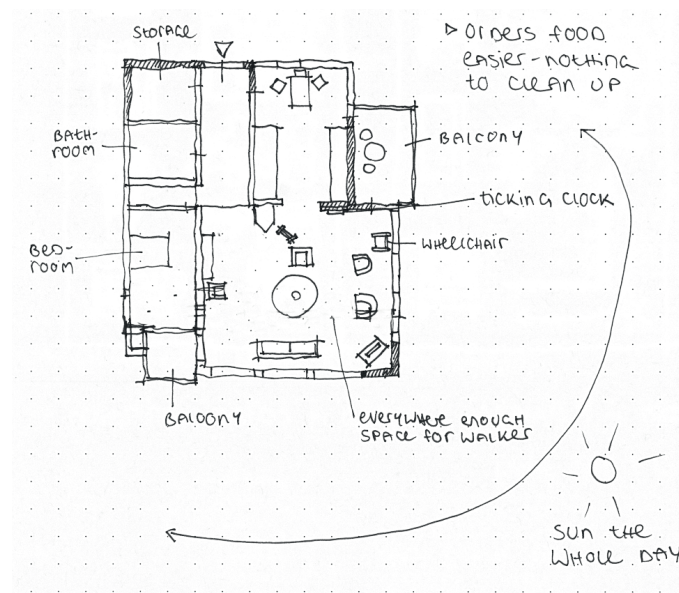 Storage
▷ Orders food
easier - nothing
to clean up
Bath-
room
Balcony
ticking clock
Wheelchair
Bed-
room
Balcony
everywhere enough
space for walker
Sun the
whole day